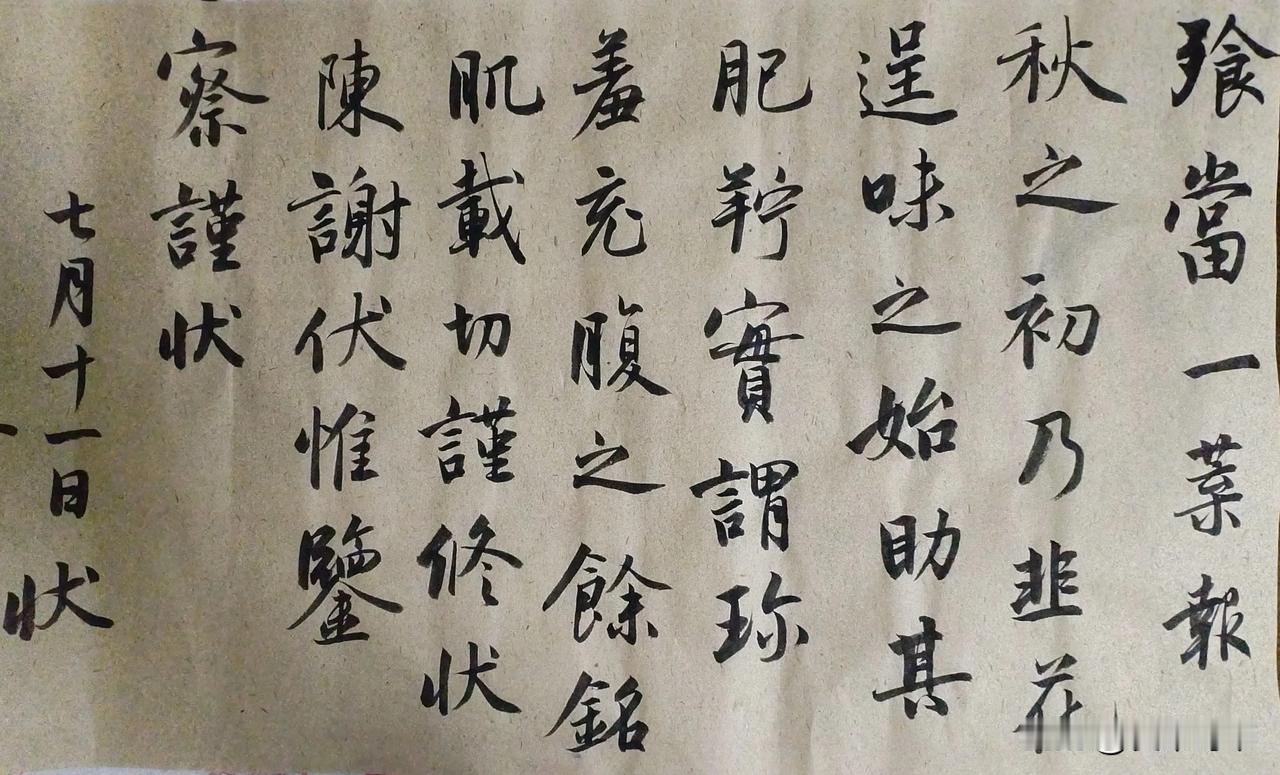 飱當一葉報
秋之初乃韭花
逞味之始助其
肥羜實謂珍
羞充腹之餘銘
肌載切謹修狀
陳謝伏惟鑒
察謹狀
七月十一日狀